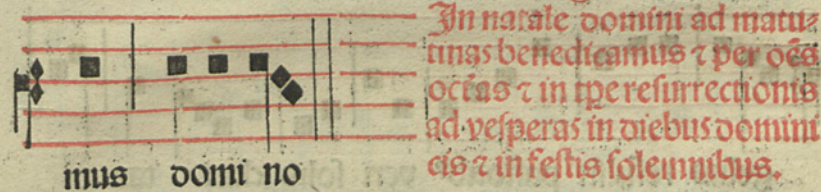 mus domi no
In natale domini ad matu⸗
tinas benedicamus ⁊ per oēs
octās ⁊ in tp̄e resurrectionis
ad vesperas in diebus domini
cis ⁊ in festis solemnibus.